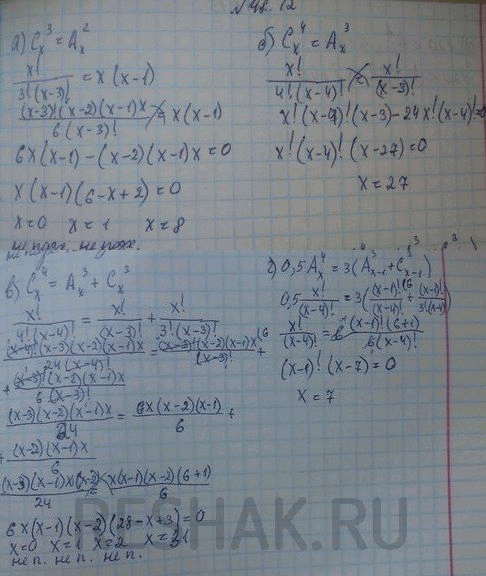 № 48. 12
а) C_x^3 = A_x^2
x! / 3!(x-3)! = x(x-1)
(x-3)!(x-2)(x-1)x / 6(x-3)! = x(x-1)
6x(x-1)-(x-2)(x-1)x=0
x(x-1)(6-x+2)=0
x=0 x=1 x=8
не подх. не подх.
б) C_x^4 = A_x^3
x! / 4!(x-4)! = x! / (x-3)!
x!(x-4)!(x-3)-24x!(x-4)!=0
x!(x-4)!(x-27)=0
x=27
в) C_x^4 = A_x^3 + C_x^3
x! / 4!(x-4)! = x! / (x-3)! + x! / 3!(x-3)!
(x-4)!(x-3)(x-2)(x-1)x / 24(x-4)! = (x-3)!(x-2)(x-1)x / (x-3)! +
+ (x-3)!(x-2)(x-1)x / 6(x-3)!
(x-3)(x-2)(x-1)x / 24 = 6x(x-2)(x-1) / 6 +
+ (x-2)(x-1)x / 6
(x-3)(x-1)x(x-2) / 24 = x(x-1)(x-2)(6+1) / 6
6x(x-1)(x-2)(28-x+3)=0
x=0 x=1 x=2 x=31
не п. не п. не п.
г) 0,5A_x^4 = 3(A_{x-1}^3 + C_{x-1}^3)
0,5 x! / (x-4)! = 3((x-1)! / (x-4)! + (x-1)! / 3!(x-4)!)
x! / (x-4)! = 6 (x-1)!(6+1) / 6(x-4)!
(x-1)!(x-7)=0
x=7
RESHAK.RU